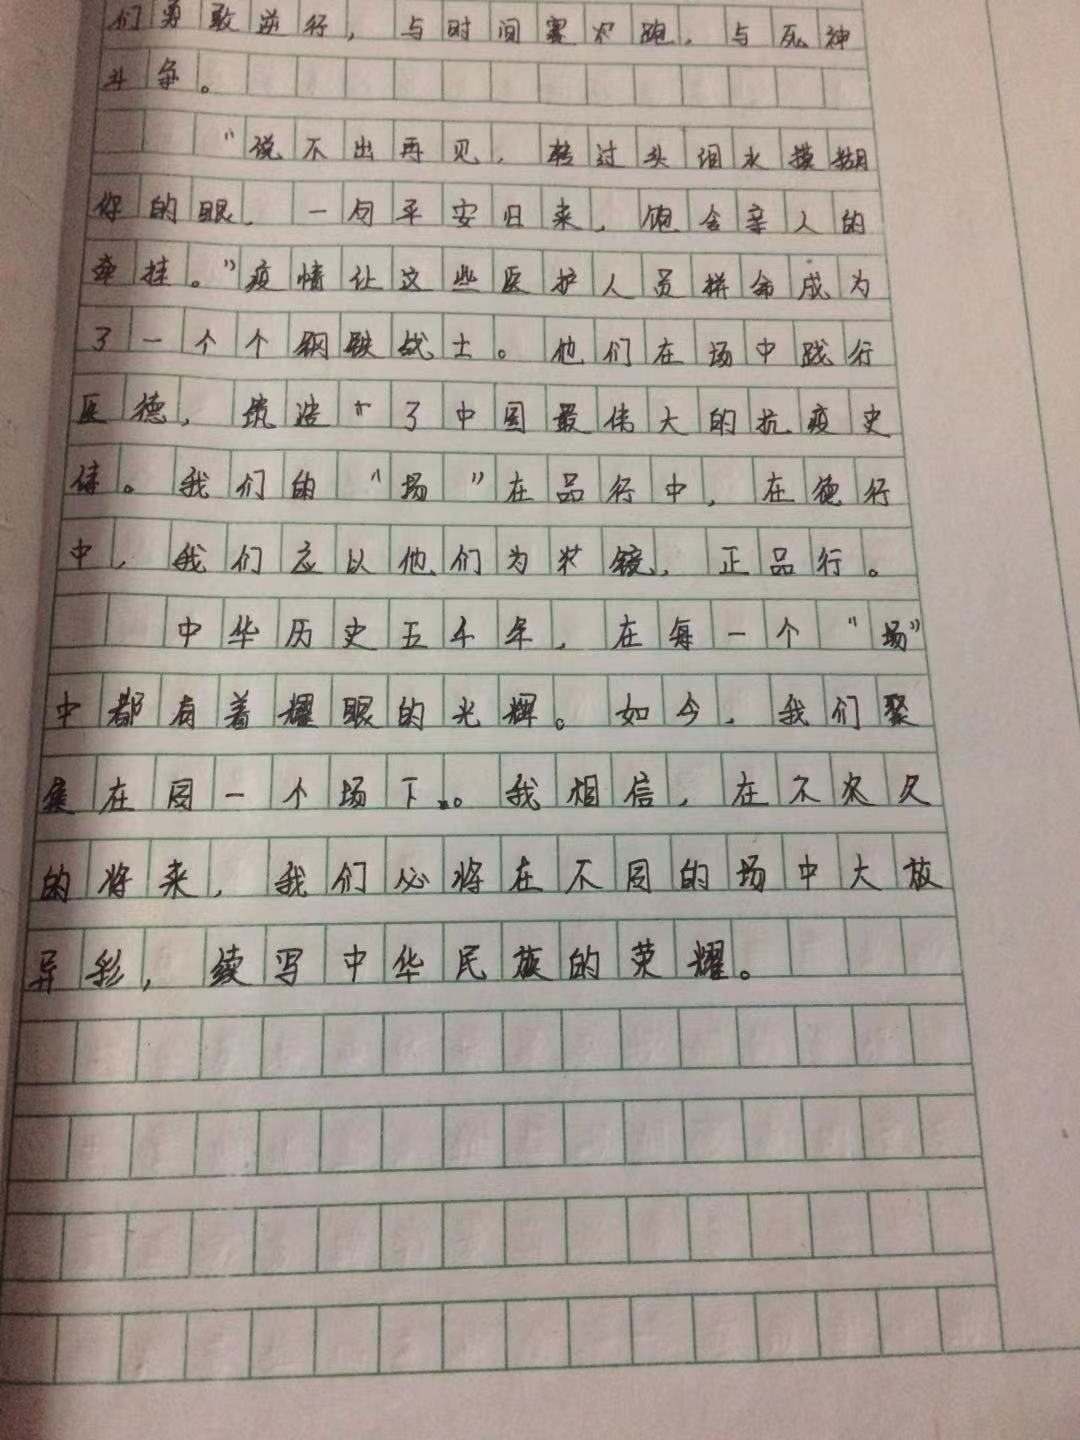 们勇敢逆行，与时间赛跑，与死神
斗争。
“说不出再见，转过头泪水模糊
你的眼，一句平安归来，饱含亲人的
牵挂。”疫情让这些医护人员拼命成为
了一个个钢铁战士。他们在场中践行
医德，筑造了中国最伟大的抗疫史
诗。我们的“场”在品行中，在德行
中，我们应以他们为镜，正品行。
中华历史五千年，在每一个“场”
中都有着耀眼的光辉。如今，我们聚
集在同一个场下。我相信，在不久
的将来，我们必将在不同的场中大放
异彩，续写中华民族的荣耀。